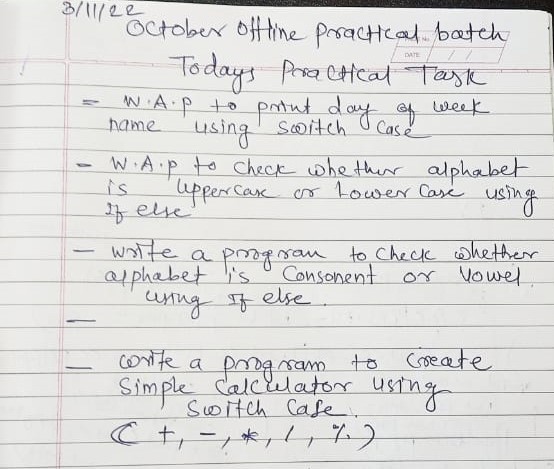 3/11/22
October Offline practical batch
DATE
Todays Practical Task
= W.A.P to print day of week
name using switch case
- W.A.P to check whether alphabet
is uppercase or Lower Case using
If else
- write a program to check whether
alphabet is Consonent or Vowel
using If else.
-
- write a program to Create
Simple Calculator using
Switch Case.
( +, -, *, /, %)